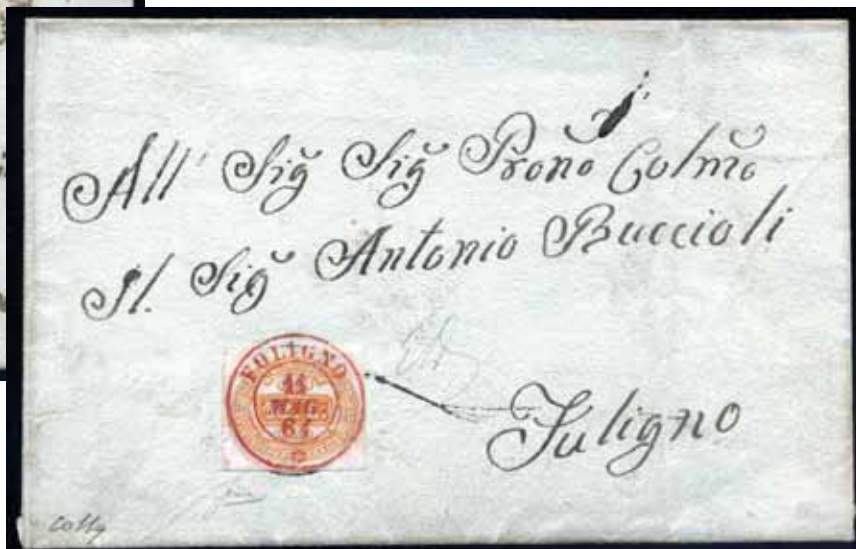 All' Sig Sig Prono Colmo
Il. Sig Antonio Buccioli
FOLIGNO
11
MAG.
61
Fuligno